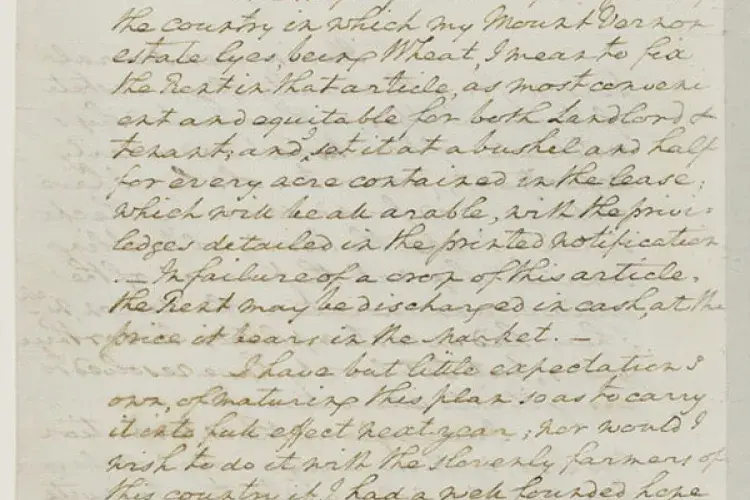 the country in which my Mount Vernon
estate lyes, being Wheat, I mean to fix
the Rent in that article, as most conveni
ent and equitable for both Landlord &
tenant; and I set it at a bushel and half
for every acre contained in the lease;
which will be all arable, with the privi-
ledges detailed in the printed notification
.— In failure of a crop of this article,
the Rent may be discharged in cash, at the
price it bears in the market.—
I have but little expectation I
own, of maturing this plan so as to carry
it into full effect next year; nor would I
wish to do it with the slovenly farmers of
this country if I had a well founded hope